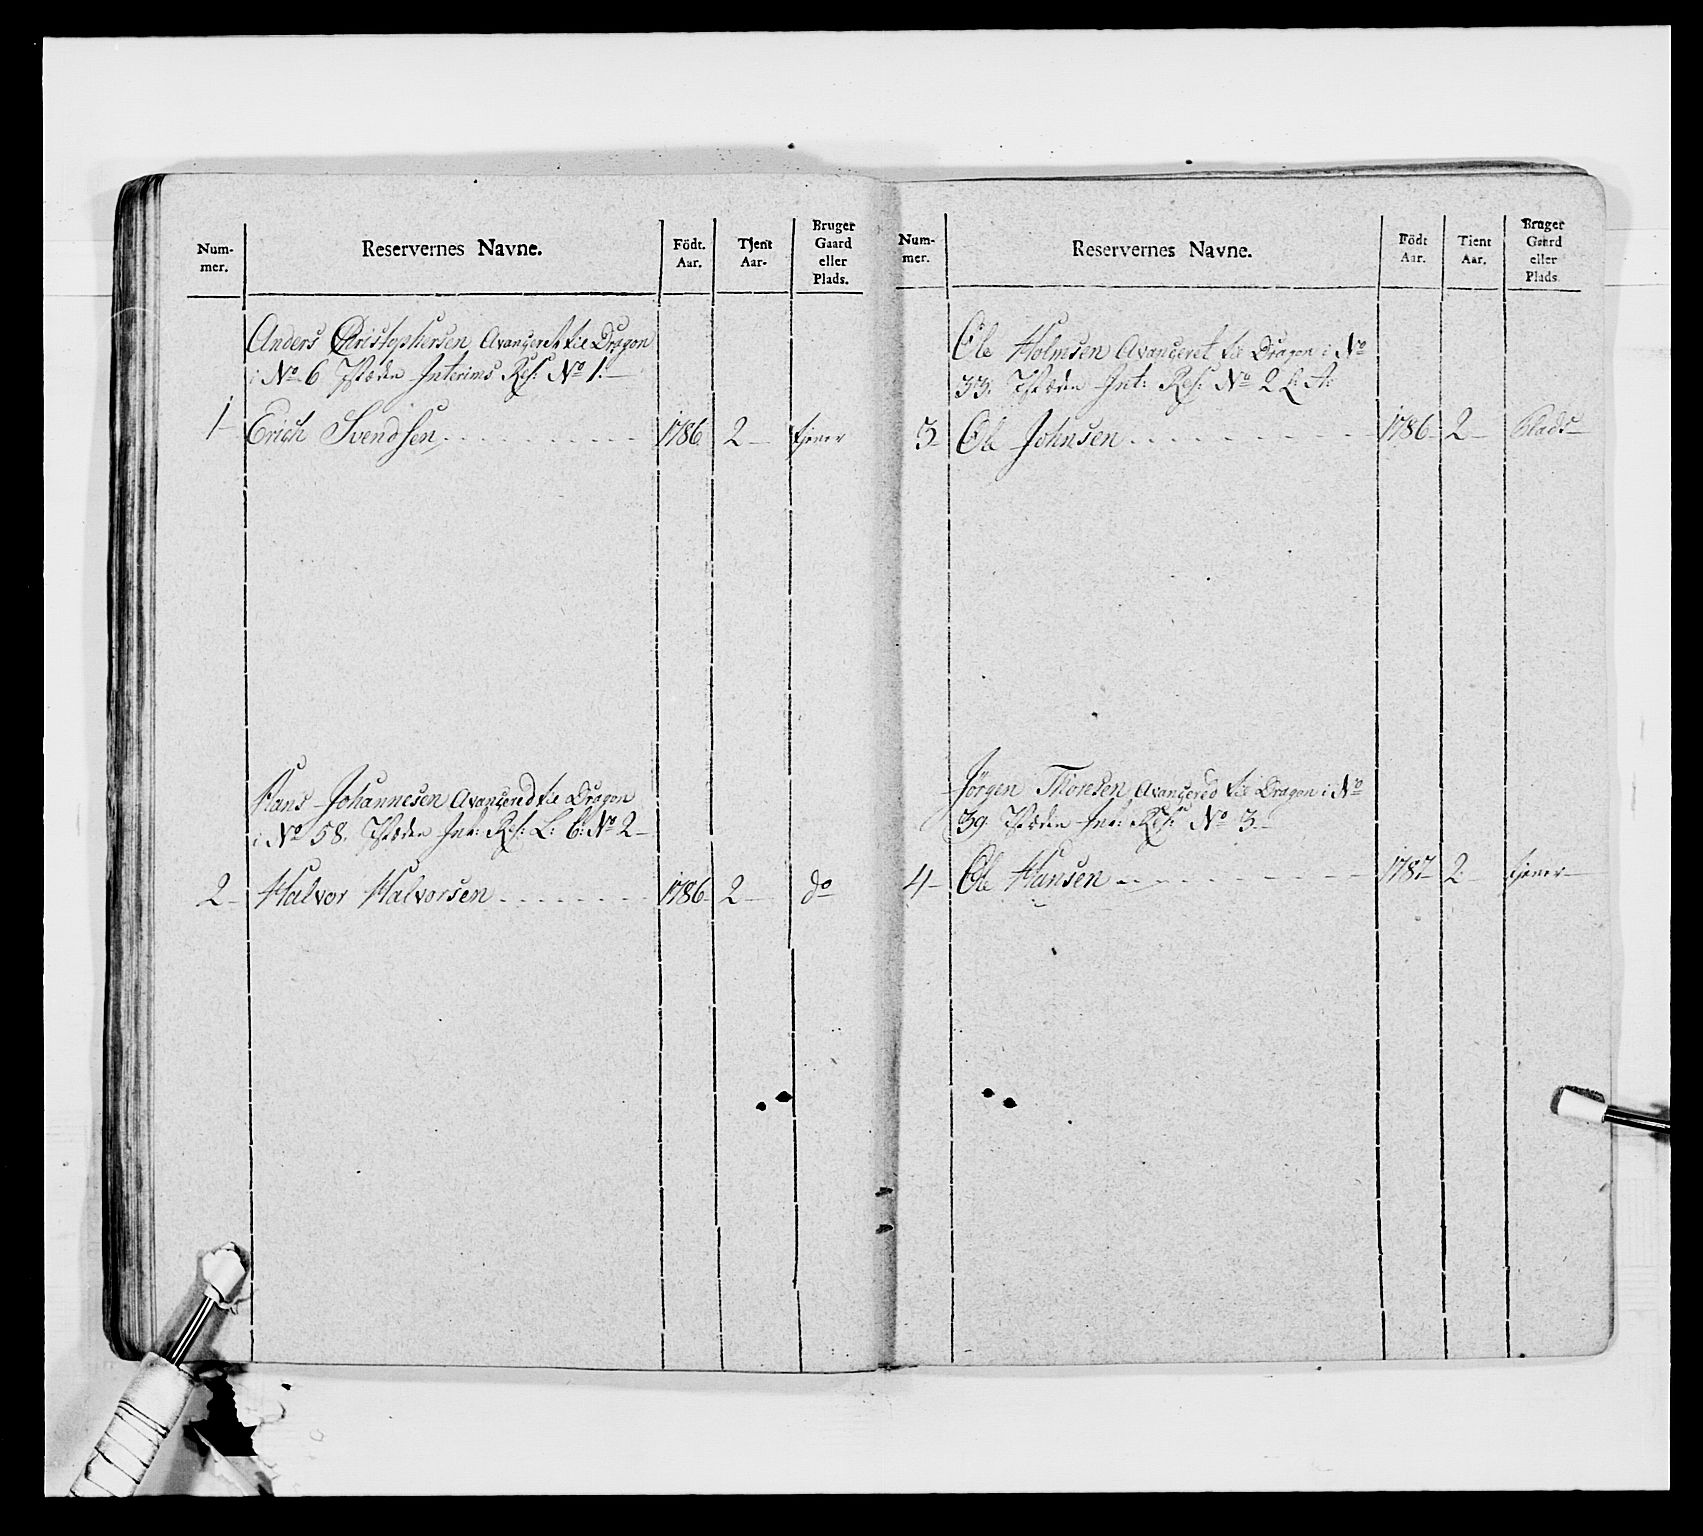 Num-
mer.
Reservernes Navne.
Födt.
Aar.
Tjent
Aar.
Bruger
Gaard
eller
Plads.
Anders Christophersen Avanceret til Dragon
i No 6 Interims Res: No 1.
1 Erich Svendsen 1786 2 tjener
Hans Johannesen Avancered til Dragon
i No 58. Int: Res: L: No 2
2 Halvor Halvorsen 1786 2 do
Num-
mer.
Reservernes Navne.
Födt
Aar.
Tient
Aar.
Bruger
Gaard
eller
Plads.
Ole Holmsen Avanceret til Dragon i No
33. Int: Res: No 2 L: A:
3 Ole Johnsen 1786 2 Plads
Jørgen Thoresen Avancered til Dragon i No
39. Int: Res: No 3.
4 Ole Hansen 1787 2 tjener